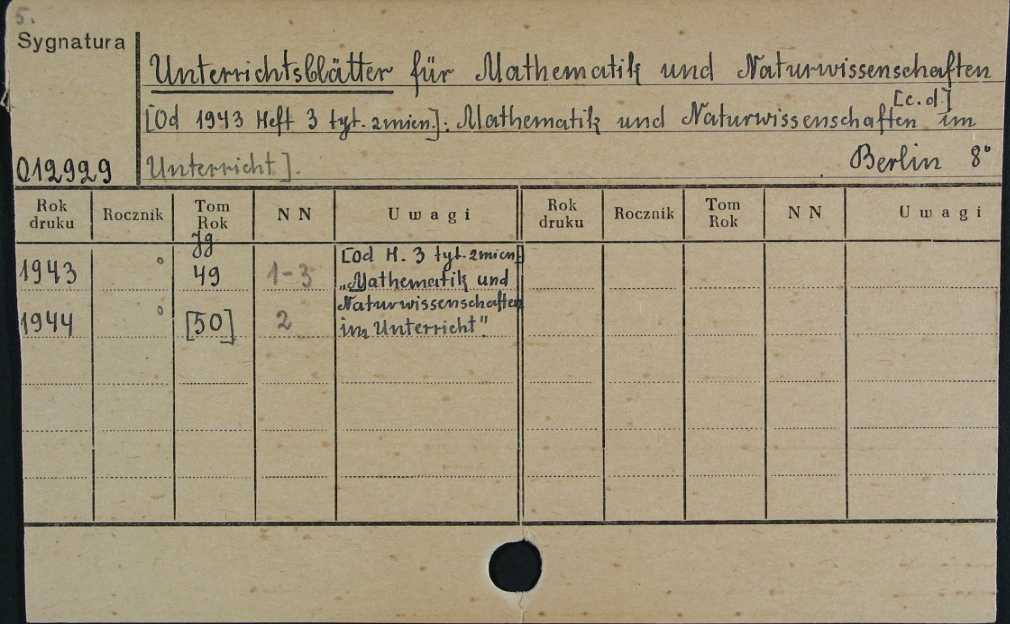 5.
Sygnatura
Unterrichtsblätter für Mathematik und Naturwissenschaften
[c.d.]
[Od 1943 Heft 3 tyt. zmien.]: Mathematik und Naturwissenschaften im
012929 Unterricht]. Berlin 8°
Rok druku Rocznik Tom Rok N N Uwagi Rok druku Rocznik Tom Rok N N Uwagi
Jg
1943 ° 49 1-3 [od H. 3 tyt. zmien.]
„Mathematik und
Naturwissenschaften
1944 ° [50] 2 im Unterricht".